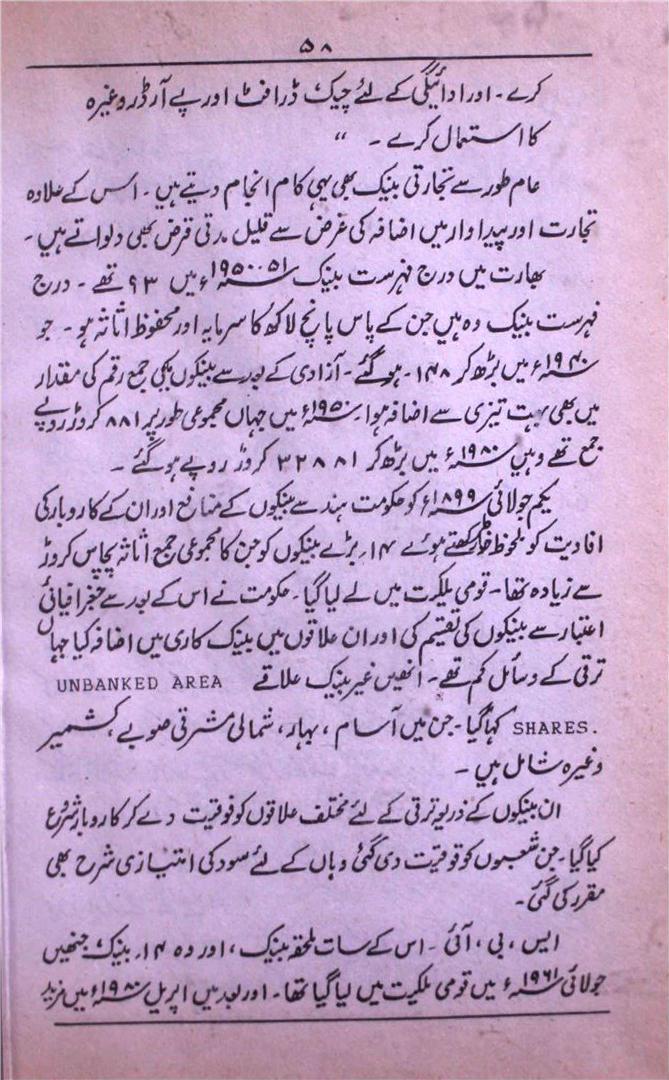 ۵۸
کرے۔ اور ادائیگی کے لئے چیک ڈرافٹ اور پے آرڈر وغیرہ
کا استعمال کرے ۔ "
عام طور سے تجارتی بینک بھی یہی کام انجام دیتے ہیں۔ اس کے علاوہ
تجارت اور پیداوار میں اضافہ کی غرض سے قلیل مدتی قرض بھی دلواتے ہیں۔
بھارت میں درج فہرست بینک ۵۱۔۱۹۵۰ء میں ۹۳ تھے ۔ درج
فہرست بینک وہ ہیں جن کے پاس پانچ لاکھ کا سرمایہ اور محفوظ اثاثہ ہو ۔ جو
میں بڑھ کر ۱۴۸ ۔ ہوگئے ۔ آزادی کے بعد سے بینکوں کی جمع رقم کی مقدار
میں بھی بہت تیزی سے اضافہ ہوا۔ ۱۹۵۰ء میں جہاں مجموعی طور پر ۸۸۱ کروڑ روپے
جمع تھے وہیں ۱۹۸۰ء میں بڑھ کر ۳۲۸۸۱ کروڑ روپے ہو گئے ۔
یکم جولائی ۱۸۹۹ء کو حکومت ہند سے بینکوں کے منافع اور ان کے کاروبار کی
افادیت کو ملحوظ خاطر رکھتے ہوئے ۱۴؍ بڑے بینکوں کو جن کا مجموعی جمع اثاثہ پچاس کروڑ
سے زیادہ تھا۔ قومی ملکیت میں لے لیا گیا ۔ حکومت نے اس کے بعد سے جغرافیائی
اعتبار سے بینکوں کی تقسیم کی اور ان علاقوں میں بینک کاری میں اضافہ کیا جہاں
ترقی کے وسائل کم تھے۔ انھیں غیر بینک علاقے UNBANKED AREA
SHARES. کہا گیا۔ جن میں آسام ، بہار، شمالی مشرقی صوبے ، کشمیر
وغیرہ شامل ہیں ۔
ان بینکوں کے ذریعہ ترقی کے لئے مختلف علاقوں کو فوقیت دے کر کاروبار شروع
کیا گیا ۔ جن شعبوں کو فوقیت دی گئی وہاں کے لئے سود کی امتیازی شرح بھی
مقرر کی گئی۔
ایس ، بی ، آئی ۔ اس کے سات ملحقہ بینک ، اور وہ ۱۴؍ بینک جنھیں
جولائی ۱۹۶۱ء میں قومی ملکیت میں لیا گیا تھا۔ اور بعد میں اپریل ۱۹۸۰ء میں مزید